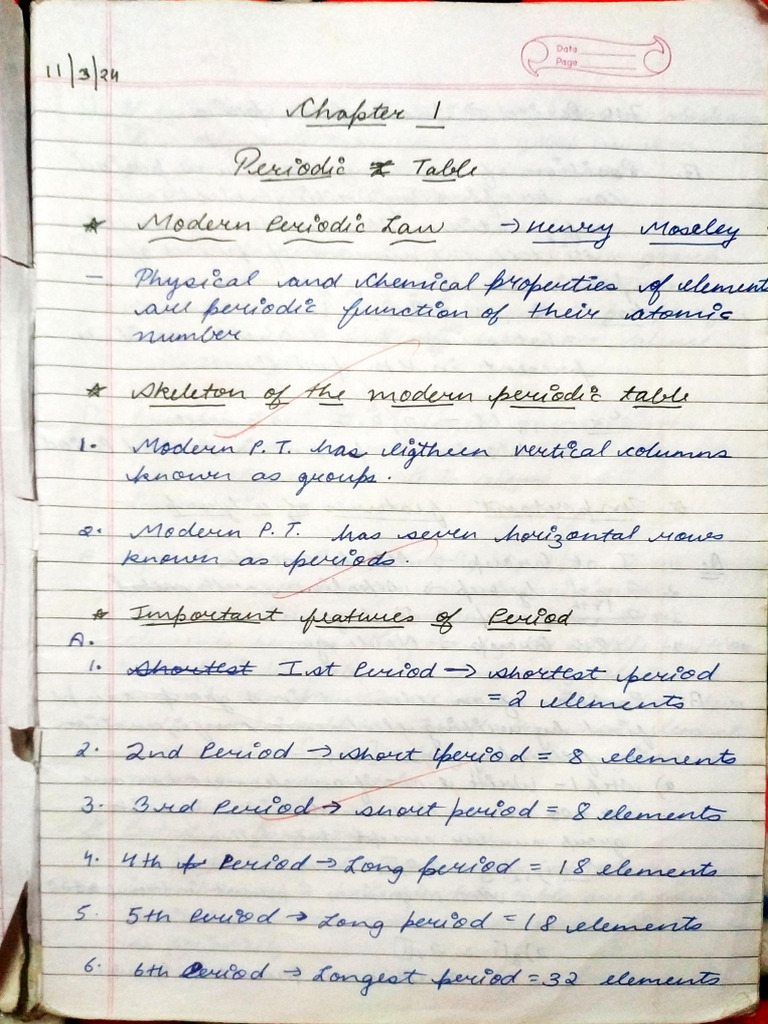 Date
Page
11/3/24
Chapter 1
Periodic Table
* Modern Periodic Law → Henry Moseley
- Physical and chemical properties of elements
are periodic function of their atomic
number
* Skeleton of the modern periodic table
1. Modern P.T. has eigtheen vertical columns
known as groups.
2. Modern P.T. has seven horizontal rows
known as periods.
* Important features of Period
A.
1. Shortest I st Period → shortest period
= 2 elements
2. 2nd Period → short period = 8 elements
3. 3rd Period → short period = 8 elements
4. 4th Period → Long period = 18 elements
5. 5th Period → Long period = 18 elements
6. 6th Period → Longest period = 32 elements